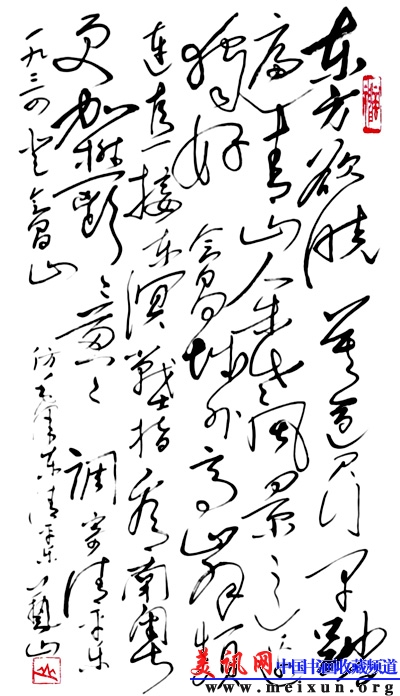 东方欲晓 莫道君行早 踏
遍青山人未老 风景这边
独好 会昌城外高峰 颠
连直接东溟 戰士指看南粤
更加鬱々葱々 调寄清平乐
一九三四登会昌山
仿毛泽东清平乐 山
美讯网 中国书画收藏频道
www.meixun.org